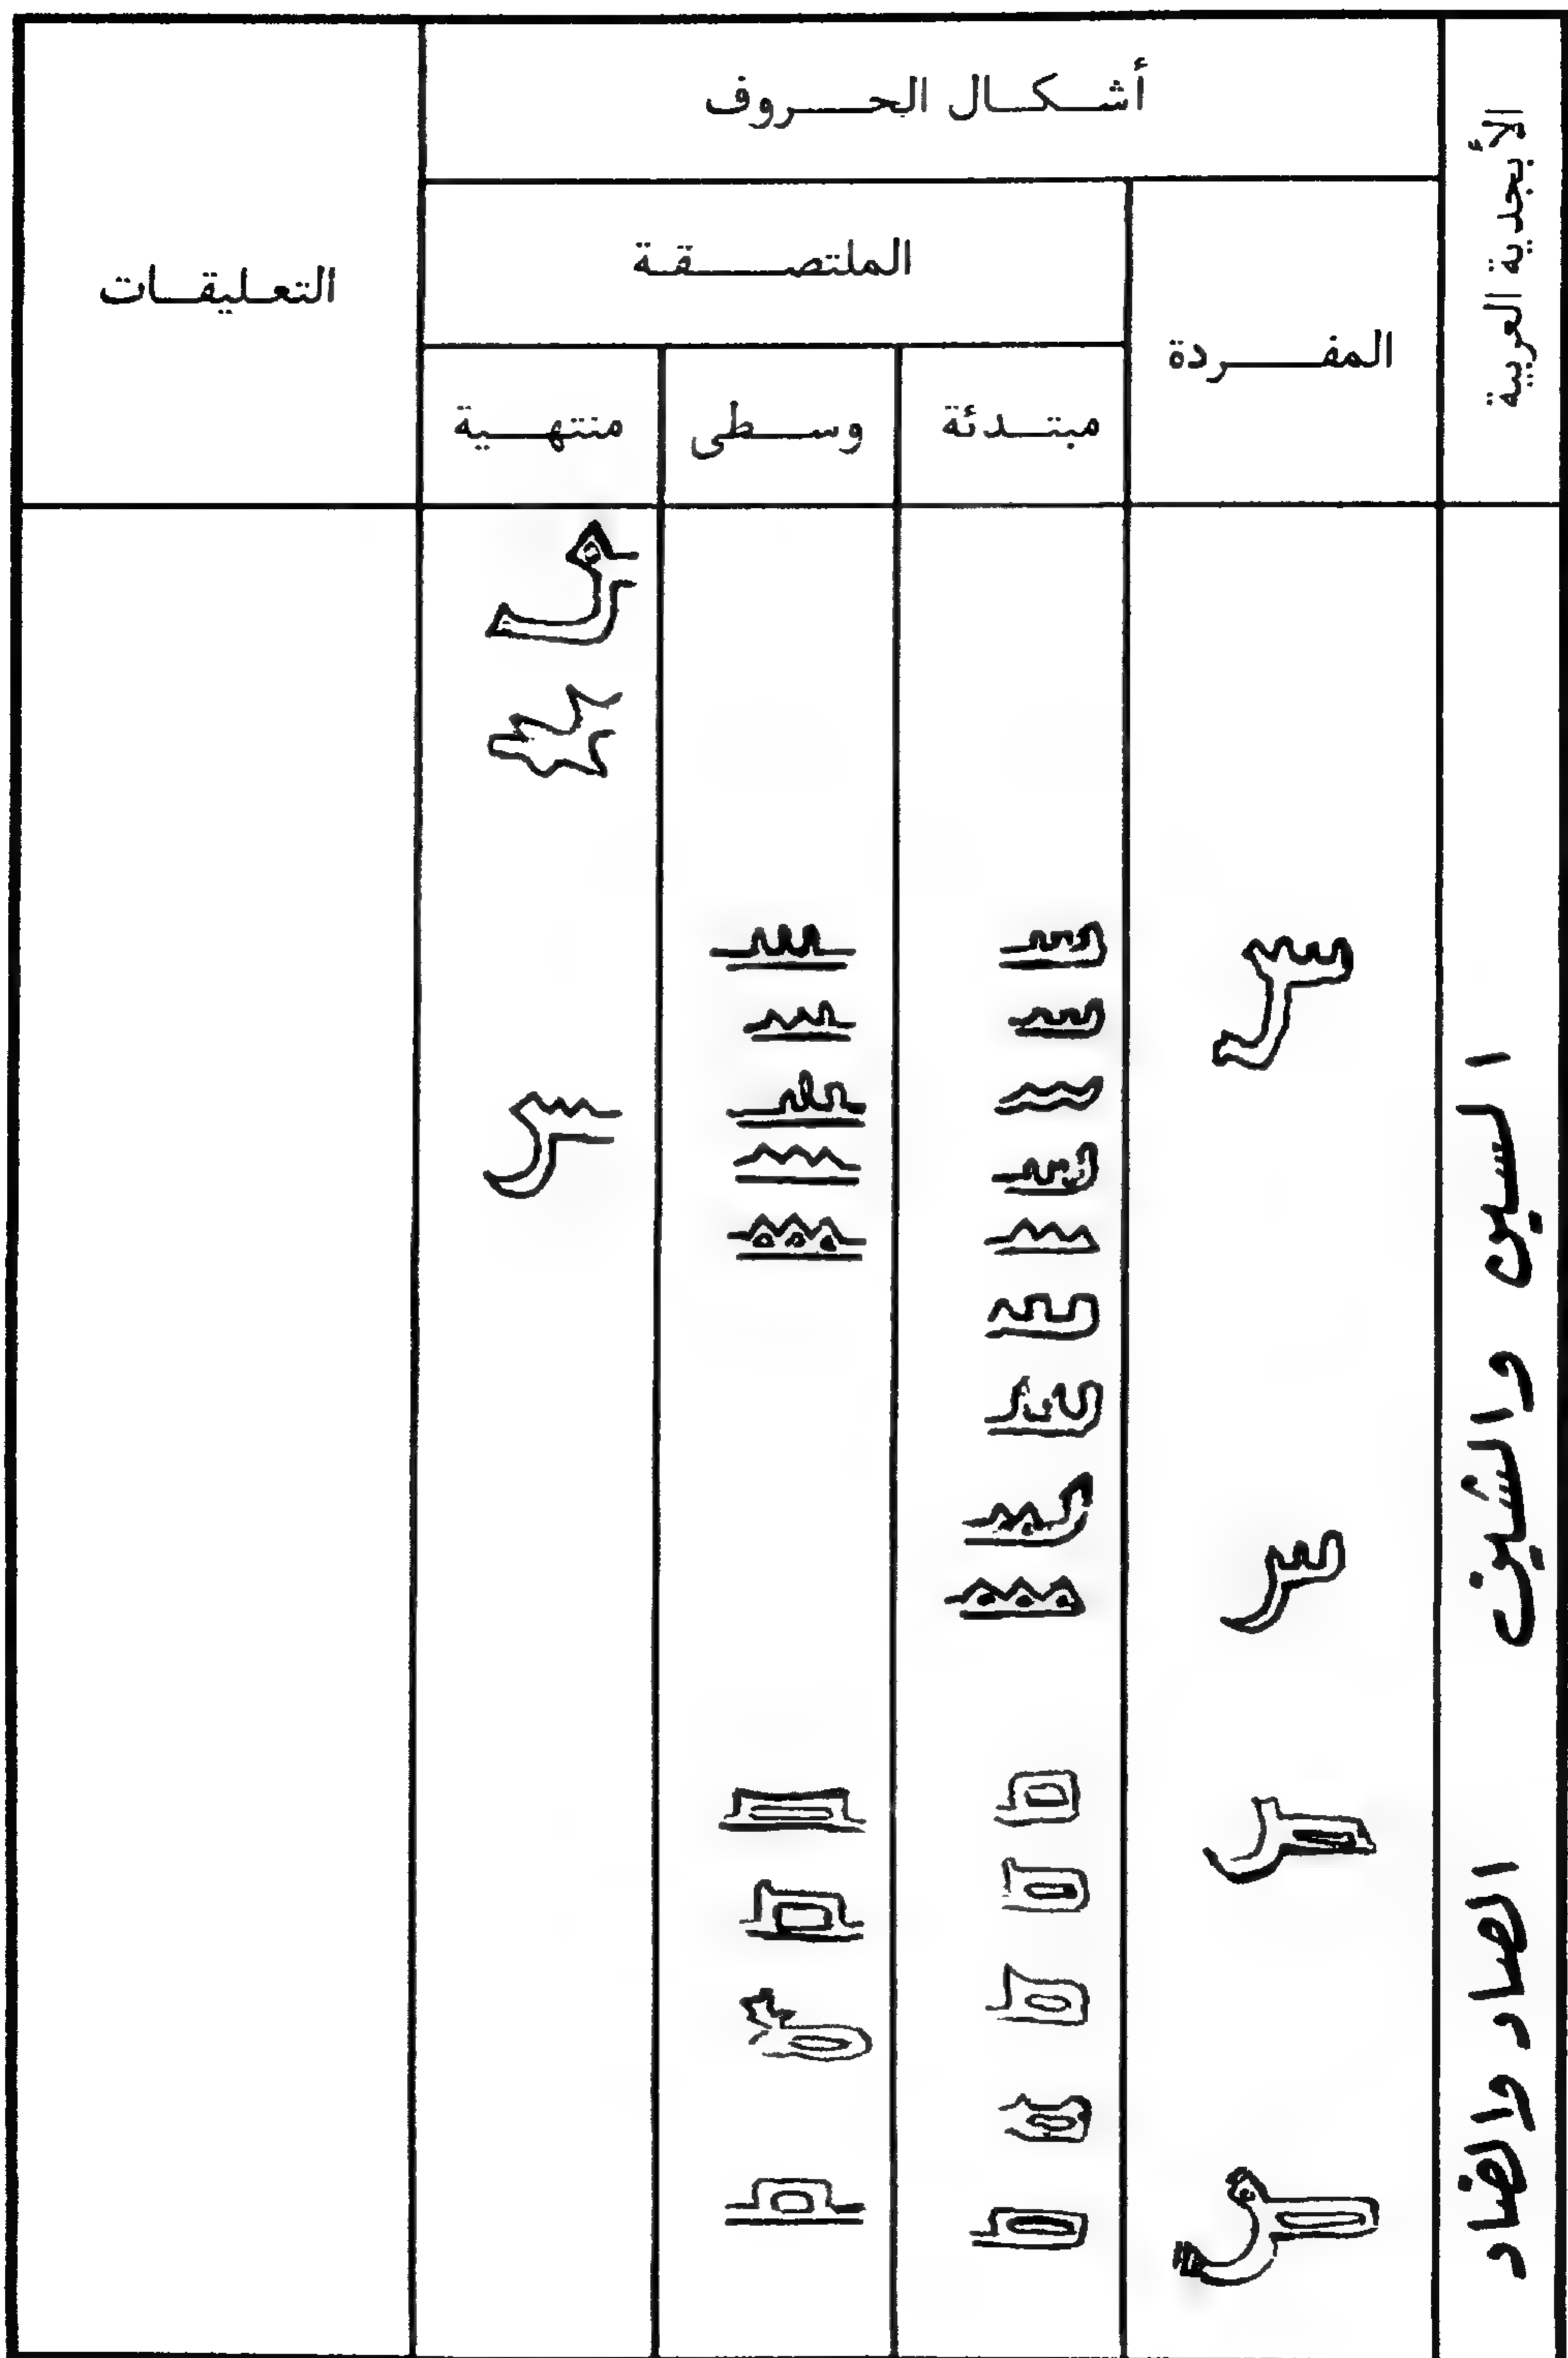 الأبجدية العربية
أشكال الحروف
التعليقات
الملتصقة
المفردة
مبتدئة
وسطى
منتهية
السين والشين
الصاد والضاد